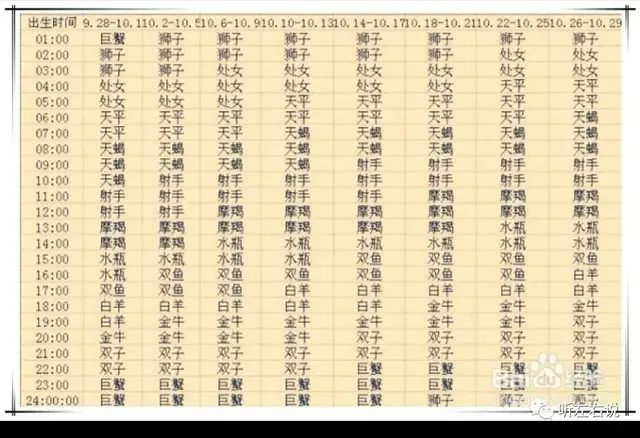 出生时间 9.28-10.1 10.2-10.5 10.6-10.9 10.10-10.13 10.14-10.17 10.18-10.21 10.22-10.25 10.26-10.29
01:00 巨蟹 狮子 狮子 狮子 狮子 狮子 狮子 狮子
02:00 狮子 狮子 狮子 狮子 狮子 狮子 处女 处女
03:00 狮子 狮子 处女 处女 处女 处女 处女 处女
04:00 处女 处女 处女 处女 处女 处女 天平 天平
05:00 处女 处女 处女 天平 天平 天平 天平 天平
06:00 天平 天平 天平 天平 天平 天平 天蝎 天蝎
07:00 天平 天平 天平 天蝎 天蝎 天蝎 天蝎 天蝎
08:00 天蝎 天蝎 天蝎 天蝎 天蝎 天蝎 天蝎 天蝎
09:00 天蝎 天蝎 天蝎 天蝎 射手 射手 射手 射手
10:00 天蝎 射手 射手 射手 射手 射手 射手 射手
11:00 射手 射手 射手 射手 射手 摩羯 摩羯 摩羯
12:00 射手 射手 摩羯 摩羯 摩羯 摩羯 摩羯 摩羯
13:00 摩羯 摩羯 摩羯 摩羯 摩羯 摩羯 水瓶 水瓶
14:00 摩羯 摩羯 水瓶 水瓶 水瓶 水瓶 水瓶 水瓶
15:00 水瓶 水瓶 水瓶 水瓶 双鱼 双鱼 双鱼 双鱼
16:00 水瓶 双鱼 双鱼 双鱼 双鱼 双鱼 双鱼 白羊
17:00 双鱼 双鱼 双鱼 白羊 白羊 白羊 白羊 白羊
18:00 白羊 白羊 白羊 白羊 白羊 金牛 金牛 金牛
19:00 白羊 金牛 金牛 金牛 金牛 金牛 双子 双子
20:00 金牛 金牛 金牛 金牛 双子 双子 双子 双子
21:00 双子 双子 双子 双子 双子 双子 双子 双子
22:00 双子 双子 双子 双子 巨蟹 巨蟹 巨蟹 巨蟹
23:00 巨蟹 巨蟹 巨蟹 巨蟹 巨蟹 巨蟹 巨蟹 巨蟹
24:00:00 巨蟹 巨蟹 巨蟹 巨蟹 巨蟹 狮子 狮子 狮子
Bai 经验
听左右说